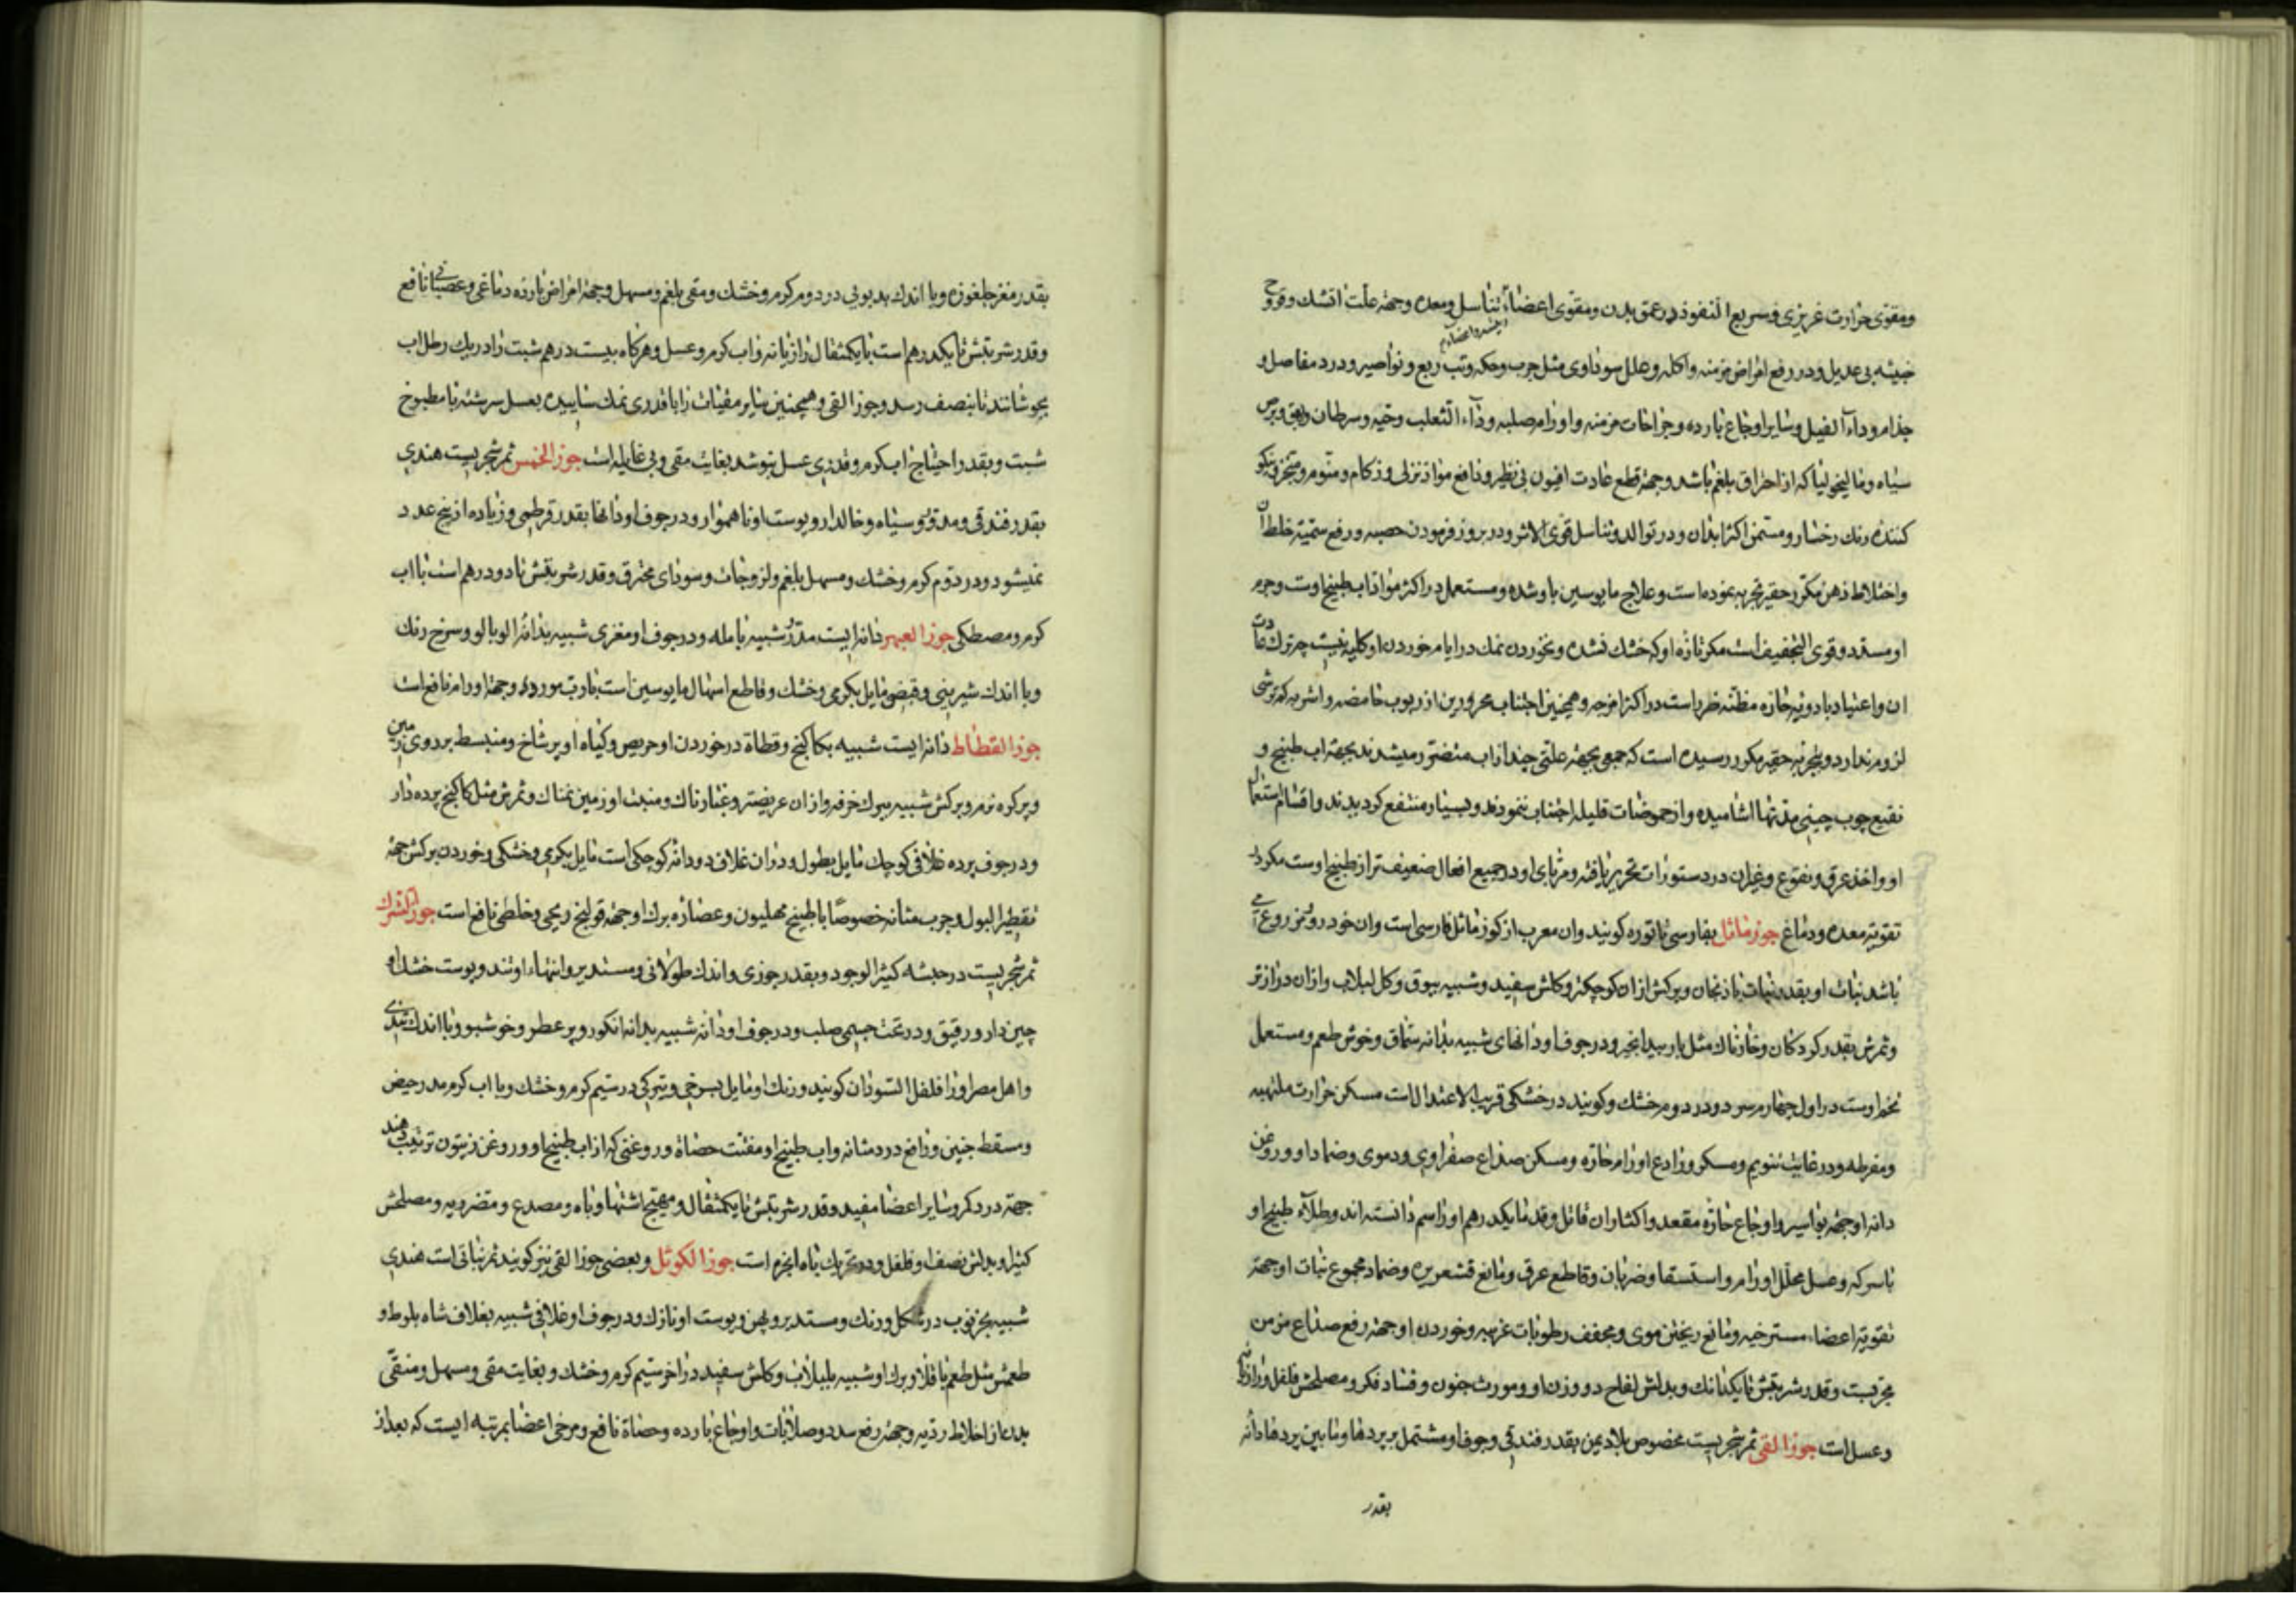 ومقوی حرارت غریزی و سریع النفوذ در عمق بدن و مقوی اعضاء تناسل و معده و جهة علت اتشک و قروح
خبیثه بی عدیل و در رفع امراض مزمنه و اکله و علل سوداوی مثل جرب و حکه و تب ربع و نواصیر و درد مفاصل و
جذام و داء الفیل و سایر اوجاع بارده و جراحات مزمنه و اورام صلبه و داء الثعلب و حیه و سرطان و بهق و برص
سیاه و مالیخولیا که از احتراق بلغم باشد و جهة قطع عادت افیون بی نظیر و نافع مواد نزلی و زکام و منوم و مبخر و نیکو
کننده رنك رخسار و مسمن اکثر ابدان و در توالد و تناسل قوی الاثر و در بروز فرمودن حصبه و رفع سمیة خلط آن
و اختلاط ذهن مکرر حقیر تجربه نموده است و علاج مایوسین باو شده و مستعمل در اکثر مواد اب طبیخ اوست و جرم
او مسدد و قوی التجفیف است مکر تازه او که خشك نشده و نخوردن نمك در ایام خوردن او کلیه نیست چه ترك عادت
ان و اعتیاد بادویه حاره مظنه ضرر است در اکثر امزجه و همچنین اجتناب محرورین از ربوب حامضه و اشربه که ترشی
لزوم ندارد و بتجربه حقیر مکرر رسیده است که جمعی بجهة علتی چند از اب متضرر میشدند بجهة اب طبیخ و
نقیع چوب چینی مدتها اشامیده و از حموضات قلیله اجتناب ننمودند و بسیار منتفع کردیدند و اقسام استعمال
او و اخذ عرق و نقوع و غیر ان در دستورات تحریر یافته و مربای او در جمیع افعال ضعیف تر از طبیخ اوست مکر در
تقویة معده و دماغ جوز ماثل بفارسی تاتوره کویند و ان معرب از کوز ماثل فارسی است و ان خود رو و مزروع می
باشد نبات او بقدر نبات بادنجان و برکش ازان کوچکتر و کلش سفید و شبیه ببوق و کل لبلاب و ازان درازتر
و ثمرش بقدر کردکان و خارناك مثل بار بید انجیر و در جوف او دانهای شبیه بدانه سماق و خوش طعم و مستعمل
تخم اوست در اول چهارم سرد و در دوم خشك و کویند در خشکی قریب الاعتدال است مسکن حرارت ملتهبه
و مفرطه و در غایت تنویم و مسکر و رادع اورام حاره و مسکن صداع صفراوی و دموی و ضماد او و روغن
دانه او جهة بواسیر و اوجاع حاره مقعد و اکثار ان قاتل و قدر تا یکدرهم او را سم دانسته اند و طلاء طبیخ او
با سرکه و عسل محلل اورام و استسقا و ضربان و قاطع عرق و مانع قشعریره و ضماد مجموع نبات او جهة
تقویة اعضاء مسترخیه و مانع ریختن موی و مجفف رطوبات غریبه و خوردن او جهة رفع صداع مزمن
مجربست و قدر شربتش تا یکدانك و بدلش لفاح دو وزن او و مورث جنون و فساد فکر و مصلحش فلفل و رازیانه
و عسل است جوز القی ثمر شجریست مخصوص بلاد یمن بقدر فندقی و جوف او مشتمل بر پردها و مابین پردها دانه
بقدر
بقدر مغز جلغوزه و با اندك بدبویی در دوم کرم و خشك و مقی بلغم و مسهل و جهة امراض بارده دماغی و عصبانی نافع
و قدر شربتش تا یکدرهم است با یکمثقال رازیانه و اب کرم و عسل و هرکاه بیست درهم شبت را در یك رطل اب
بجوشانند تا بنصف رسد و جوز القی و همچنین سایر مقیئات را با قدری نمك ساییده بعسل سرشته با مطبوخ
شبت و بقدر احتیاج اب کرم و قدری عسل بنوشد بغایت مقی و بی غایله است جوز الخمس ثمر شجریست هندی
بقدر فندقی و مدور و سیاه و خالدار و پوست او ناهموار و در جوف او دانها بقدر قرطمی و زیاده از پنج عدد
نمیشود و در دوم کرم و خشك و مسهل بلغم و لزوجات و سودای محترق و قدر شربتش تا دو درهم است با اب
کرم و مصطکی جوز العبهر دانه ایست مدور شبیه بامله و در جوف او مغزی شبیه بدانه الوبالو و سرخ رنك
و با اندك شیرینی و قبض مایل بکرمی و خشك و قاطع اسهال مایوسین است با رب مورد و جهة اورام نافع است
جوز القطاط دانه ایست شبیه بکاکنج و قطاة در خوردن او حریص و کیاه او پر شاخ و منبسط بر روی زمین
و پر کره نرم و برکش شبیه ببرك خرفه و ازان عریضتر و غبارناك و منبت او زمین نمناك و ثمرش مثل کاکنج پرده دار
و در جوف پرده غلافی کوچك مایل بطول و دران غلاف دو دانه کوچکی است مایل بکرمی و خشکی و خوردن برکش جهة
تقطیر البول و جرب مثانه خصوصا با طبیخ مهلیون و عصاره برك او جهة قولنج ریحی و خلطی نافع است جوز الشرك
ثمر شجریست در حبشه کثیر الوجود و بقدر جوزی و اندك طولانی و مستدیر و انتهاء او تند و پوست خشك او
چین دار و رقیق و در تحت جسمی صلب و در جوف او دانه شبیه بدانه انکور و پر عطر و خوشبو و با اندك تندی
و اهل مصر او را فلفل السودان کویند و رنك او مایل بسرخی و تیرکی در سیم کرم و خشك و با اب کرم مدر حیض
و مسقط جنین و رافع درد مثانه و اب طبیخ او مفتت حصاة و روغنی که از اب طبیخ او و روغن زیتون ترتیب دهند
جهة درد کمر و سایر اعضا مفید و قدر شربتش تا یکمثقال و مهیج اشتها و باه و مصدع و مضر ریه و مصلحش
کثیرا و بدلش نصف او فلفل و در تحریك باه انجره است جوز الکوثل و بعضی جوز القی نیز کویند ثمر نباتی است هندی
شبیه بخرنوب در شکل و رنك و مستدیر و پهن و پوست او نازك و در جوف او غلافی شبیه بغلاف شاه بلوط و
طعمش مثل طعم باقلا و برك او شبیه بلبلاب و کلش سفید در اخر سیم کرم و خشك و بغایت مقی و مسهل و منقی
بدن از اخلاط ردیه و جهة رفع سدد و صلابات و اوجاع بارده و حصاة نافع و مرخی اعضا بمرتبه ایست که بعد از